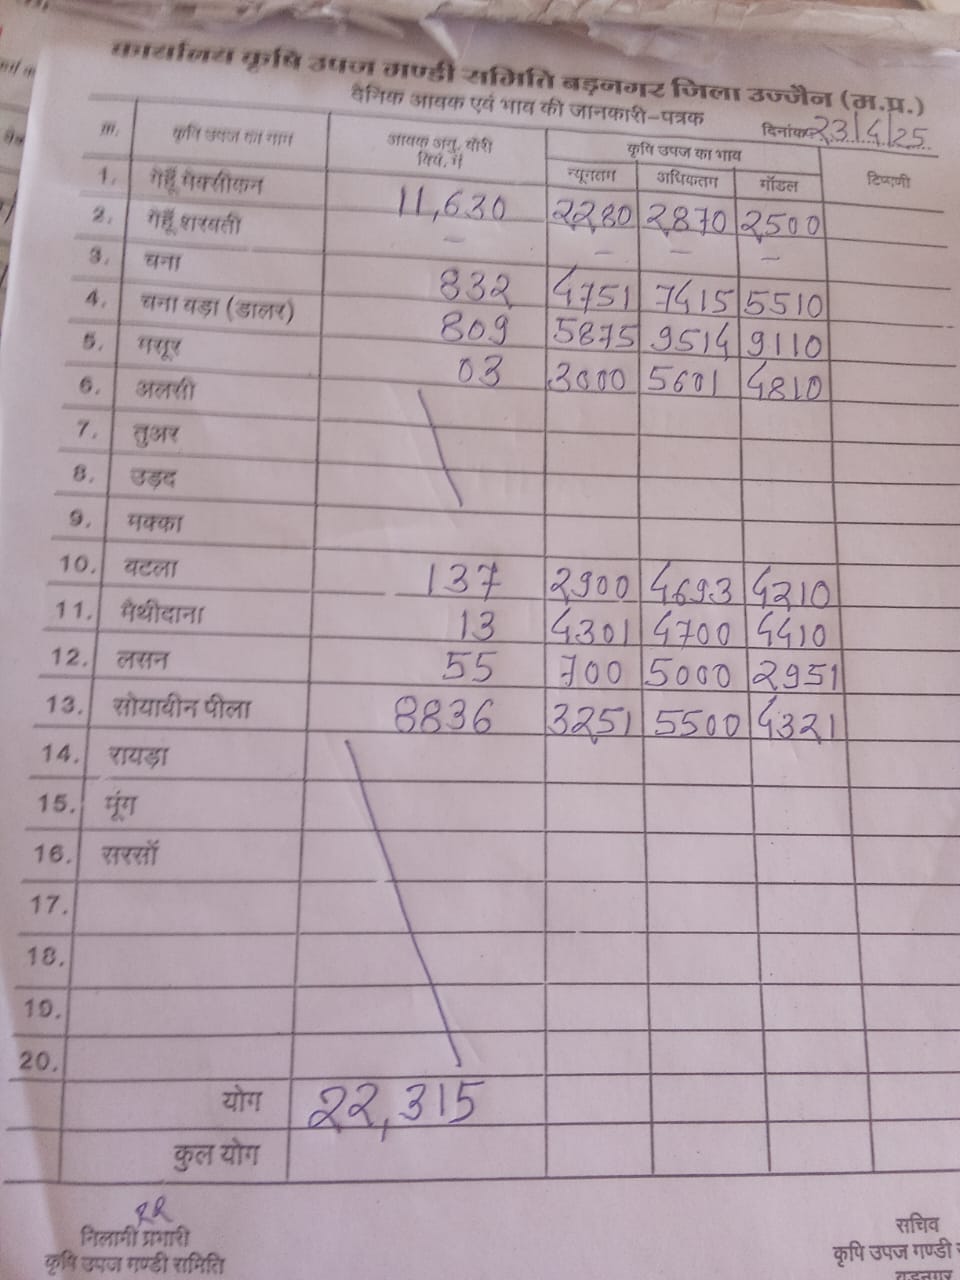 कार्यालय कृषि उपज मण्डी समिति बड़नगर जिला उज्जैन (म.प्र.)
दैनिक आवक एवं भाव की जानकारी-पत्रक
दिनांक 23/4/25
क्र. कृषि उपज का नाम आवक अनु. बोरी क्विं. में कृषि उपज का भाव टिप्पणी
न्यूनतम अधिकतम मॉडल
1. गेहूँ मैक्सीकन 11,630 2280 2870 2500
2. गेहूँ शरबती – – – –
3. चना 832 4751 7415 5510
4. चना बड़ा (डालर) 809 5875 9514 9110
5. मसूर 03 3000 5601 4810
6. अलसी
7. तुअर
8. उड़द
9. मक्का
10. बटला 137 2900 4693 4210
11. मैथीदाना 13 4301 4700 4410
12. लसन 55 700 5000 2951
13. सोयाबीन पीला 8836 3251 5500 4321
14. रायड़ा
15. मूंग
16. सरसों
17.
18.
19.
20.
योग 22,315
कुल योग
निलामी प्रभारी
कृषि उपज मण्डी समिति
सचिव
कृषि उपज मण्डी
बड़नगर